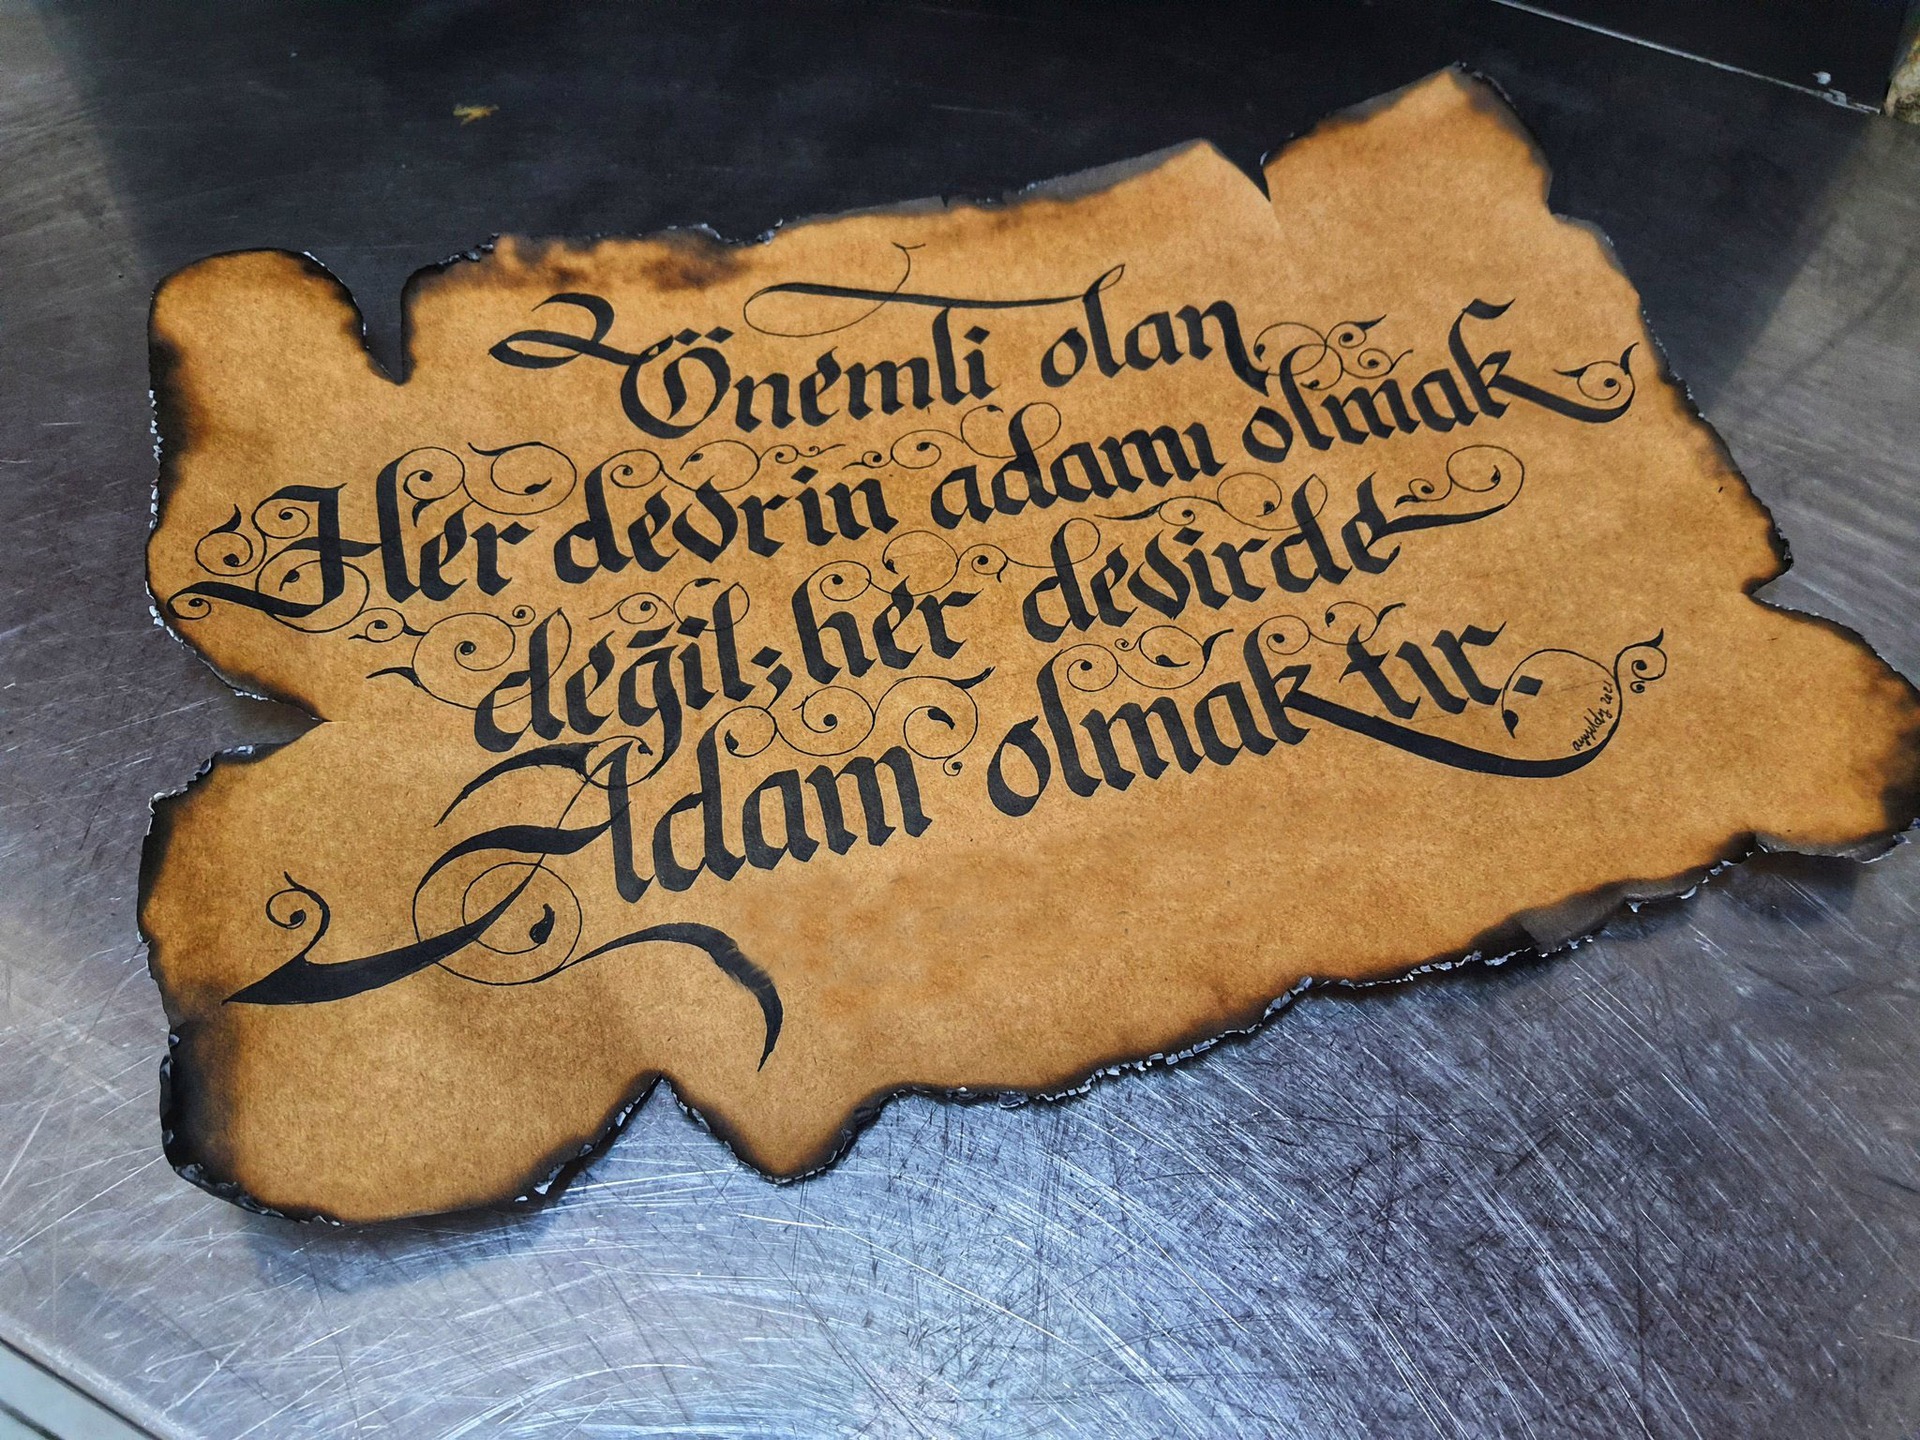 Önemli olan
Her devrin adamı olmak
değil; her devirde
Adam olmaktır.
2021